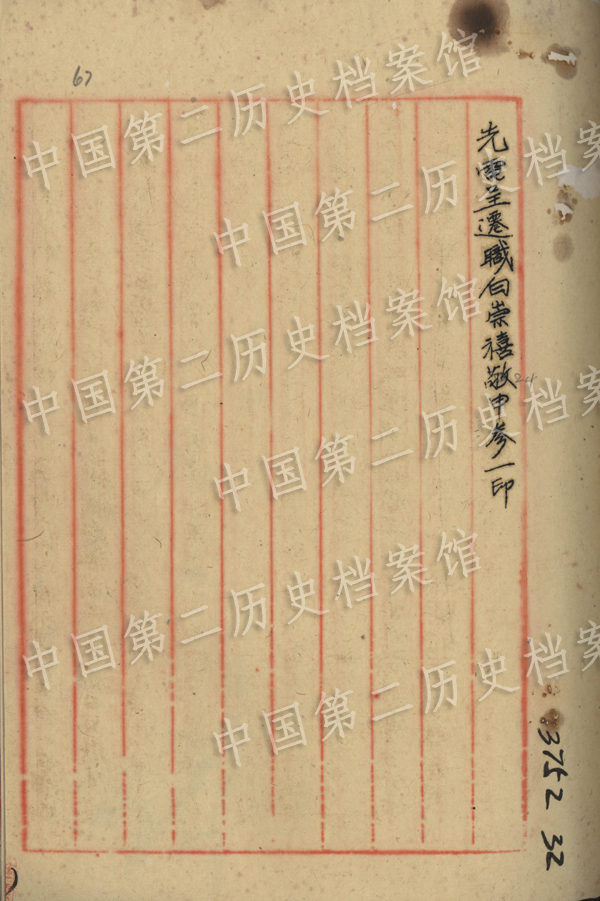 67
光電呈遷職向崇禧敬申參一印
24
3752 32
中国第二历史档案馆
中国第二历史档案馆
中国第二历史档案馆
中国第二历史档案馆
中国第二历史档案馆
中国第二历史档案馆